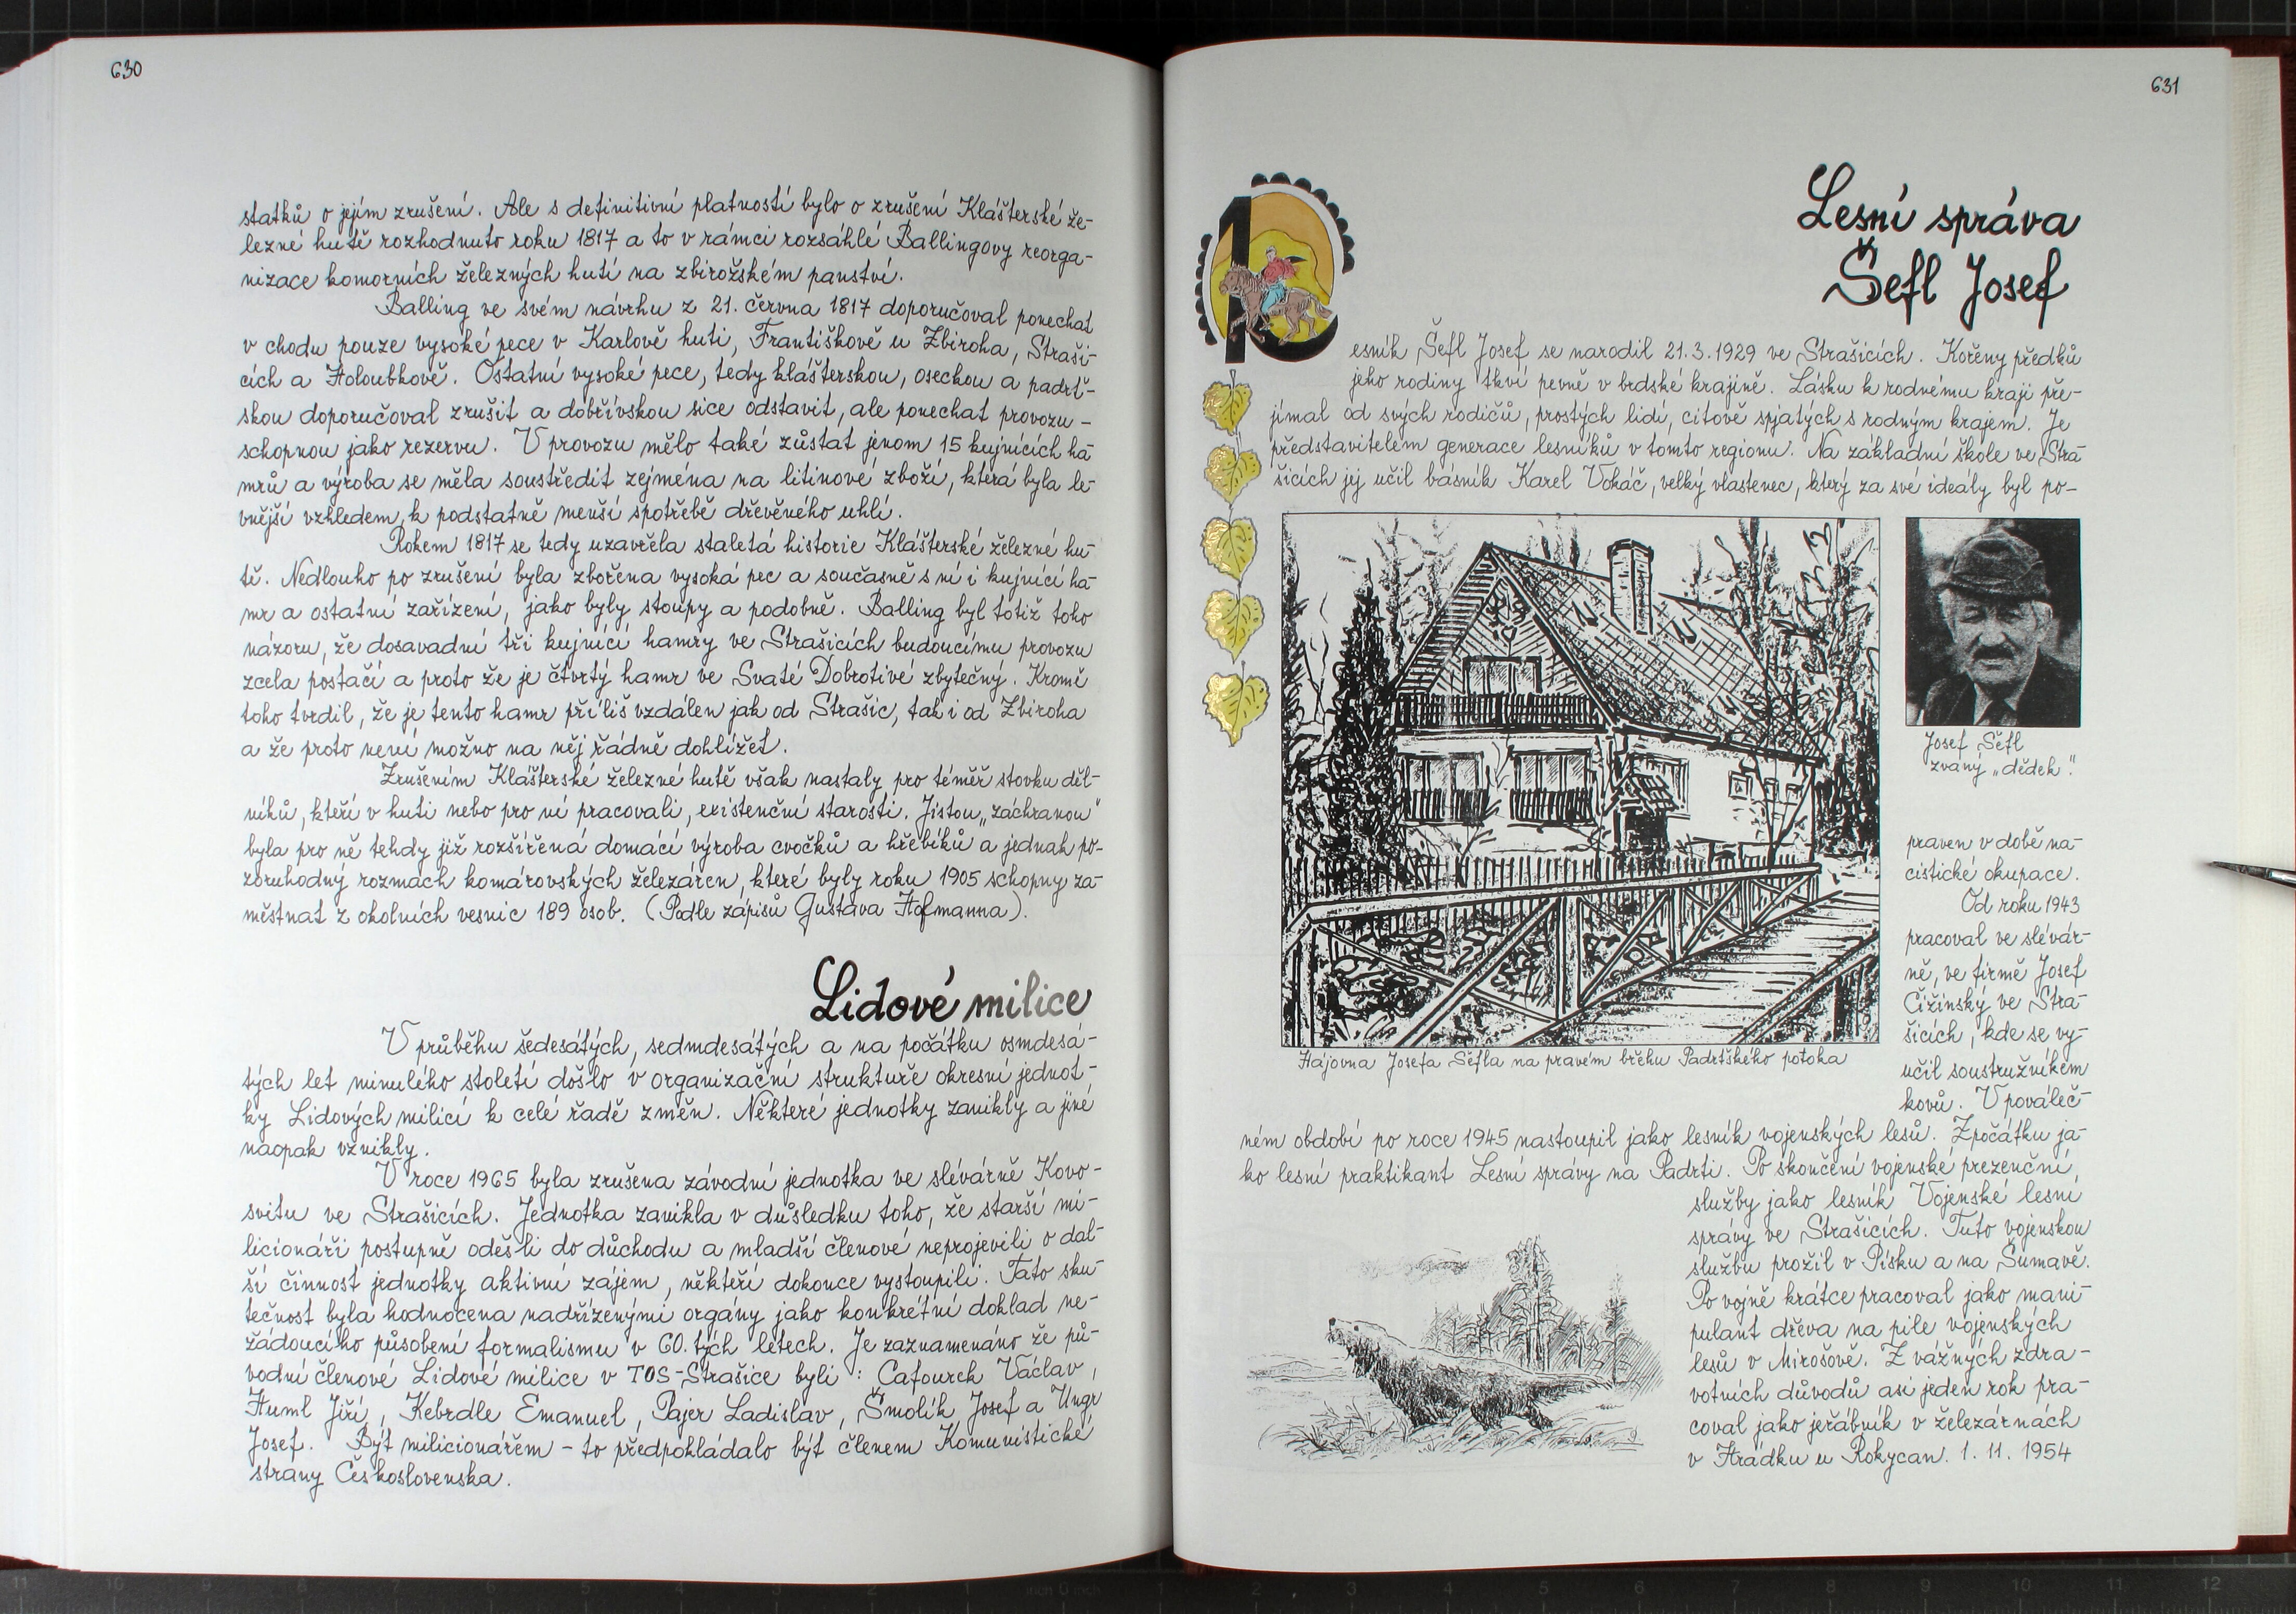 630
statků o jejím zrušení. Ale s definitivní platností bylo o zrušení Klášterské že-
lezné hutě rozhodnuto roku 1817 a to v rámci rozsáhlé Ballingovy reorga-
nizace komorních železných hutí na zbirožském panství.
Balling ve svém návrhu z 21. června 1817 doporučoval ponechat
v chodu pouze vysoké pece v Karlově huti, Františkově u Zbiroha, Straši-
cích a Holoubkově. Ostatní vysoké pece, tedy klášterskou, oseckou a padrť-
skou doporučoval zrušit a dobřívskou sice odstavit, ale ponechat provozu-
schopnou jako rezervu. V provozu mělo také zůstat jenom 15 kujnících ha-
mrů a výroba se měla soustředit zejména na litinové zboží, která byla le-
vnější vzhledem k podstatně menší spotřebě dřevěného uhlí.
Rokem 1817 se tedy uzavřela staletá historie Klášterské železné hu-
tě. Nedlouho po zrušení byla zbořena vysoká pec a současně s ní i kujnící ha-
mr a ostatní zařízení, jako byly stoupy a podobně. Balling byl totiž toho
názoru, že dosavadní tři kujnící hamry ve Strašicích budoucímu provozu
zcela postačí a proto že je čtvrtý hamr ve Svaté Dobrotivé zbytečný. Kromě
toho tvrdil, že je tento hamr příliš vzdálen jak od Strašic, tak i od Zbiroha
a že proto není možno na něj řádně dohlížet.
Zrušením Klášterské železné hutě však nastaly pro téměř stovku děl-
níků, kteří v huti nebo pro ni pracovali, existenční starosti. Jistou „záchranou"
byla pro ně tehdy již rozšířená domácí výroba cvočků a hřebíků a jednak po-
zoruhodný rozmach komárovských železáren, které byly roku 1905 schopny za-
městnat z okolních vesnic 189 osob. (Podle zápisů Gustava Hofmanna).
Lidové milice
V průběhu šedesátých, sedmdesátých a na počátku osmdesá-
tých let minulého století došlo v organizační struktuře okresní jednot-
ky Lidových milicí k celé řadě změn. Některé jednotky zanikly a jiné
naopak vznikly.
V roce 1965 byla zrušena závodní jednotka ve slévárně Kovo-
svitu ve Strašicích. Jednotka zanikla v důsledku toho, že starší mi-
licionáři postupně odešli do důchodu a mladší členové neprojevili o dal-
ší činnost jednotky aktivní zájem, někteří dokonce vystoupili. Tato sku-
tečnost byla hodnocena nadřízenými orgány jako konkrétní doklad ne-
žádoucího působení formalismu v 60.tých letech. Je zaznamenáno že pů-
vodní členové Lidové milice v TOS-Strašice byli: Cafourek Václav,
Huml Jiří, Kebrdle Emanuel, Pajer Ladislav, Šmolík Josef a Ungr
Josef. Být milicionářem - to předpokládalo být členem Komunistické
strany Československa.
631
Lesní správa
Šefl Josef
L
esník Šefl Josef se narodil 21.3.1929 ve Strašicích. Kořeny předků
jeho rodiny tkví pevně v brdské krajině. Lásku k rodnému kraji pře-
jímal od svých rodičů, prostých lidí, citově spjatých s rodným krajem. Je
představitelem generace lesníků v tomto regionu. Na základní škole ve Stra-
šicích jej učil básník Karel Vokáč, velký vlastenec, který za své ideály byl po-
Josef Šefl
zvaný „dědek".
praven v době na-
cistické okupace.
Od roku 1943
pracoval ve slévár-
ně, ve firmě Josef
Čižinský ve Stra-
šicích, kde se vy-
učil soustružníkem
kovů. V pováleč-
Hájovna Josefa Šefla na pravém břehu Padrťského potoka
ném období po roce 1945 nastoupil jako lesník vojenských lesů. Zpočátku ja-
ko lesní praktikant Lesní správy na Padrti. Po skončení vojenské prezenční
služby jako lesník Vojenské lesní
správy ve Strašicích. Tuto vojenskou
službu prožil v Písku a na Šumavě.
Po vojně krátce pracoval jako mani-
pulant dřeva na pile vojenských
lesů v Mirošově. Z vážných zdra-
votních důvodů asi jeden rok pra-
coval jako jeřábník v železárnách
v Hrádku u Rokycan. 1. 11. 1954